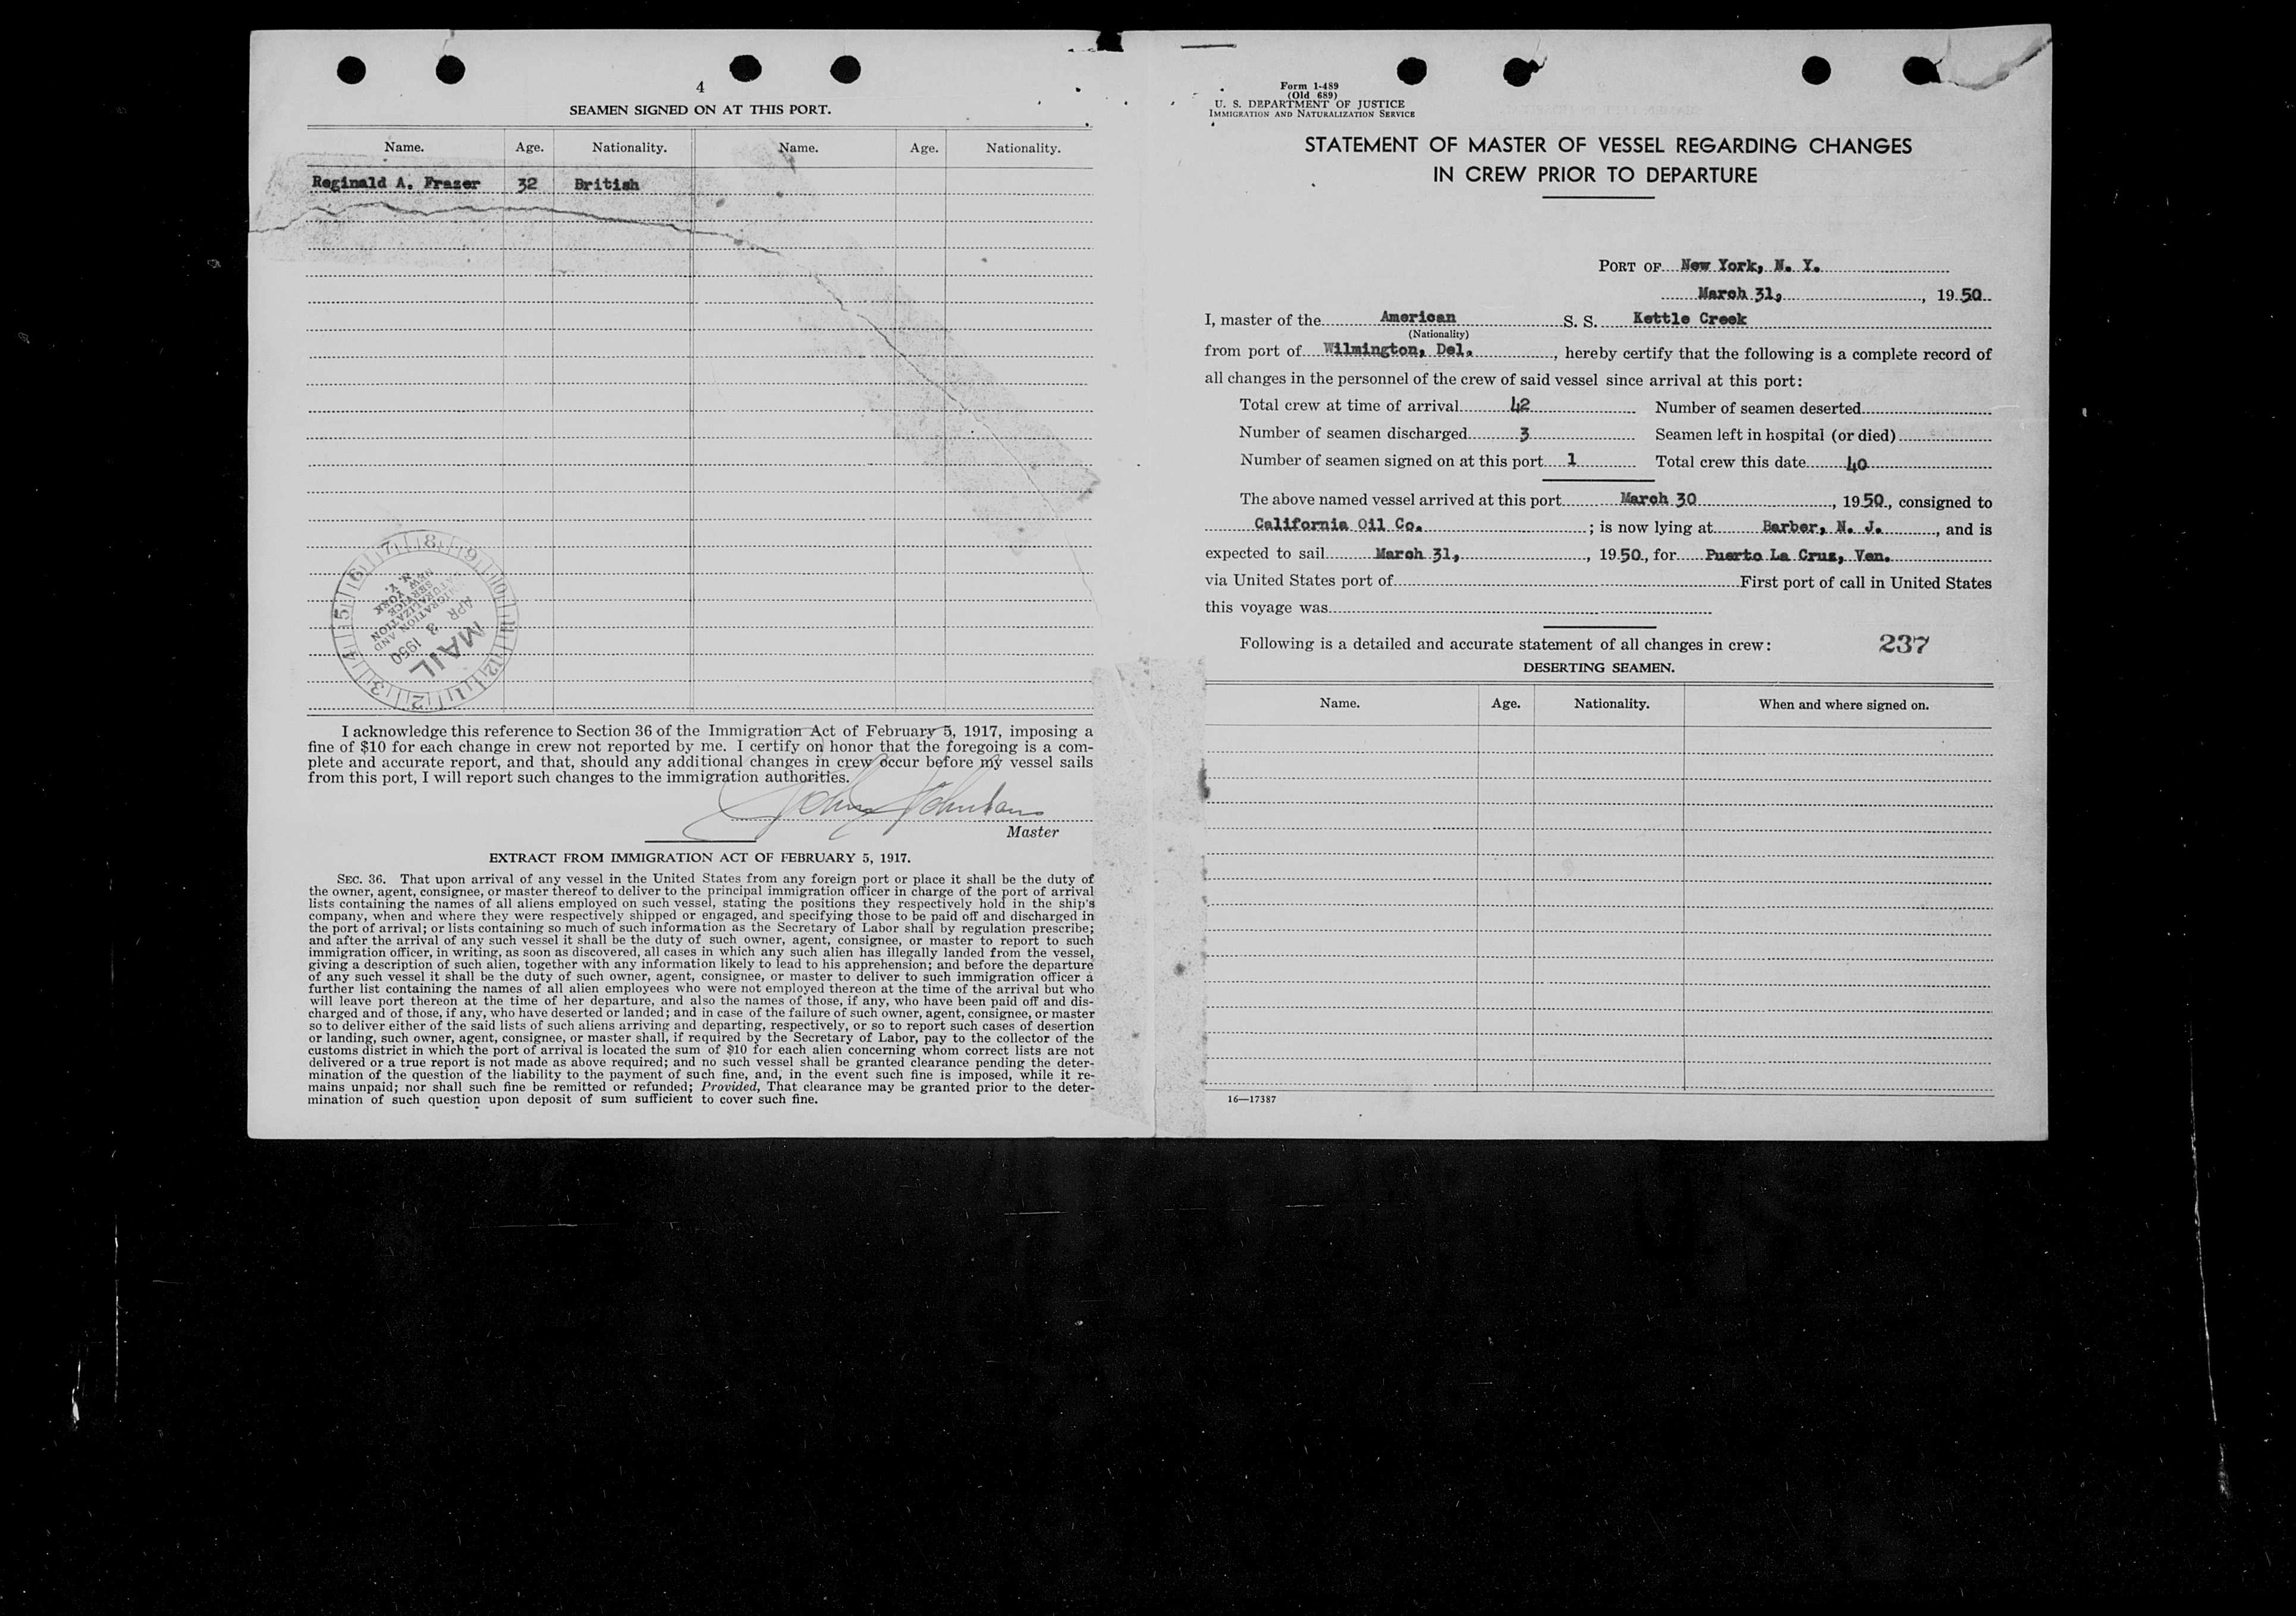 4
SEAMEN SIGNED ON AT THIS PORT.
Name. Age. Nationality. Name. Age. Nationality.
Reginald A. Frazer 32 British
7 8 9 10 11 12 1 2 3 4 5 6
IMMIGRATION AND
NATURALIZATION
SERVICE
NEW YORK
N. Y.
APR 3 1950
MAIL
I acknowledge this reference to Section 36 of the Immigration Act of February 5, 1917, imposing a
fine of $10 for each change in crew not reported by me. I certify on honor that the foregoing is a com-
plete and accurate report, and that, should any additional changes in crew occur before my vessel sails
from this port, I will report such changes to the immigration authorities.
John
Master
EXTRACT FROM IMMIGRATION ACT OF FEBRUARY 5, 1917.
SEC. 36. That upon arrival of any vessel in the United States from any foreign port or place it shall be the duty of
the owner, agent, consignee, or master thereof to deliver to the principal immigration officer in charge of the port of arrival
lists containing the names of all aliens employed on such vessel, stating the positions they respectively hold in the ship's
company, when and where they were respectively shipped or engaged, and specifying those to be paid off and discharged in
the port of arrival; or lists containing so much of such information as the Secretary of Labor shall by regulation prescribe;
and after the arrival of any such vessel it shall be the duty of such owner, agent, consignee, or master to report to such
immigration officer, in writing, as soon as discovered, all cases in which any such alien has illegally landed from the vessel,
giving a description of such alien, together with any information likely to lead to his apprehension; and before the departure
of any such vessel it shall be the duty of such owner, agent, consignee, or master to deliver to such immigration officer a
further list containing the names of all alien employees who were not employed thereon at the time of the arrival but who
will leave port thereon at the time of her departure, and also the names of those, if any, who have been paid off and dis-
charged and of those, if any, who have deserted or landed; and in case of the failure of such owner, agent, consignee, or master
so to deliver either of the said lists of such aliens arriving and departing, respectively, or so to report such cases of desertion
or landing, such owner, agent, consignee, or master shall, if required by the Secretary of Labor, pay to the collector of the
customs district in which the port of arrival is located the sum of $10 for each alien concerning whom correct lists are not
delivered or a true report is not made as above required; and no such vessel shall be granted clearance pending the deter-
mination of the question of the liability to the payment of such fine, and, in the event such fine is imposed, while it re-
mains unpaid; nor shall such fine be remitted or refunded; Provided, That clearance may be granted prior to the deter-
mination of such question upon deposit of sum sufficient to cover such fine.
Form 1-489
(Old 689)
U. S. DEPARTMENT OF JUSTICE
IMMIGRATION AND NATURALIZATION SERVICE
STATEMENT OF MASTER OF VESSEL REGARDING CHANGES
IN CREW PRIOR TO DEPARTURE
PORT OF New York, N. Y.
March 31, , 19 50
I, master of the American S. S. Kettle Creek
(Nationality)
from port of Wilmington, Del. , hereby certify that the following is a complete record of
all changes in the personnel of the crew of said vessel since arrival at this port:
Total crew at time of arrival 42 Number of seamen deserted
Number of seamen discharged 3 Seamen left in hospital (or died)
Number of seamen signed on at this port 1 Total crew this date 40
The above named vessel arrived at this port March 30 , 19 50, consigned to
California Oil Co. ; is now lying at Barber, N. J. , and is
expected to sail March 31, , 19 50, for Puerto La Cruz, Ven.
via United States port of First port of call in United States
this voyage was
Following is a detailed and accurate statement of all changes in crew: 237
DESERTING SEAMEN.
Name. Age. Nationality. When and where signed on.
16—17387